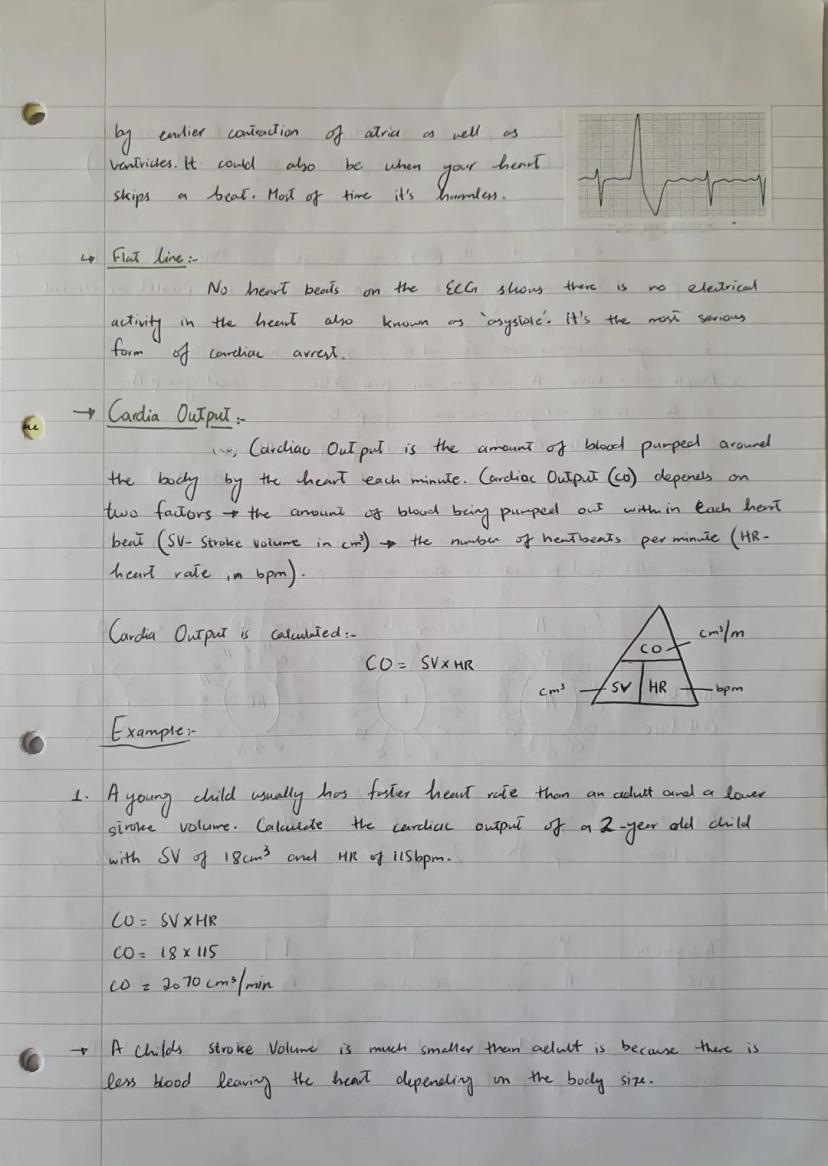 by earlier contraction of atria as well as
ventricles. It could also be when your heart
skips a beat. Most of time it's harmless.
↳ Flat line:-
No heart beats on the ECG shows there is no electrical
activity in the heart also known as 'asystole'. it's the most serious
form of cardiac arrest.
→ Cardia Output:-
Cardiac Output is the amount of blood pumped around
the body by the heart each minute. Cardiac Output (CO) depends on
two factors → the amount of blood being pumped out within each heart
beat (SV- Stroke volume in cm³) → the number of heartbeats per minute (HR-
heart rate in bpm).
Cardia Output is calculated:-
CO = SV x HR
CO cm³/m
cm³ SV HR bpm
Example:-
1. A young child usually has faster heart rate than an adult and a lower
stroke volume. Calculate the cardiac output of a 2-year old child
with SV of 18cm³ and HR of 115bpm.
CO = SV x HR
CO = 18 x 115
CO = 2070 cm³/min
→ A childs stroke Volume is much smaller than adult is because there is
less blood leaving the heart depending on the body size.